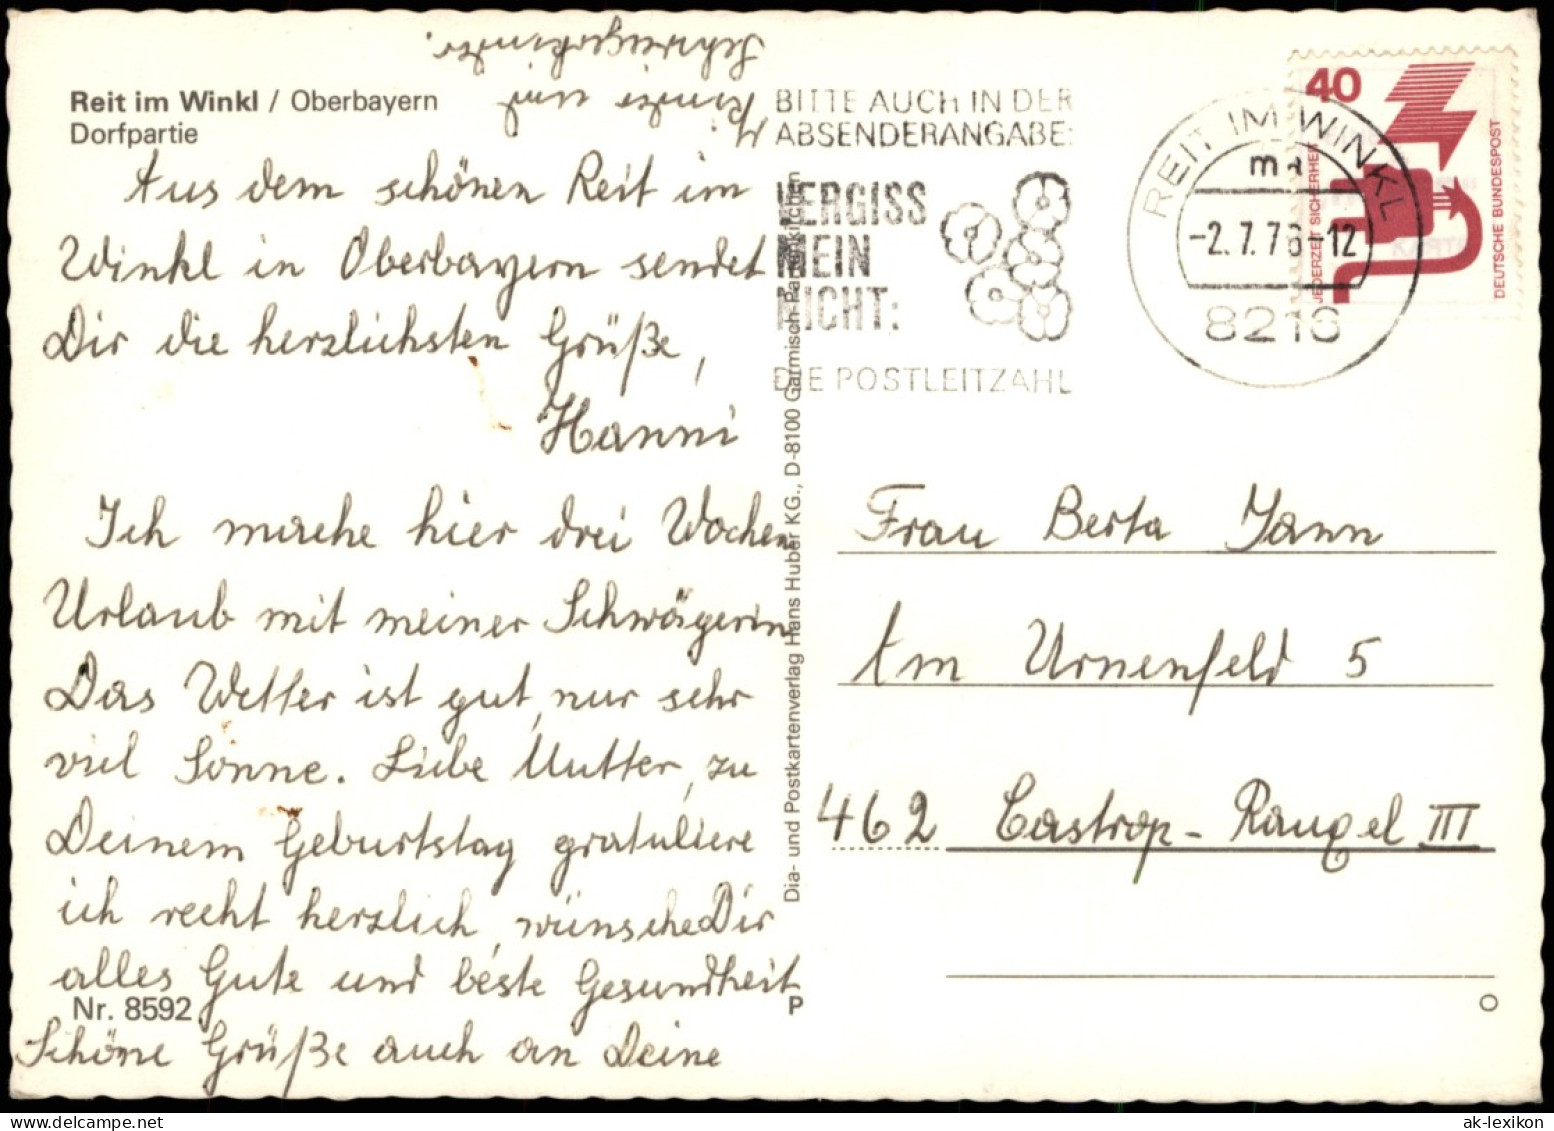 Reit im Winkl / Oberbayern
Dorfpartie
Aus dem schönen Reit im
Winkl in Oberbayern sendet
Dir die herzlichsten Grüße,
Hanni
Ich mache hier drei Wochen
Urlaub mit meiner Schwägerin
Das Wetter ist gut, nur sehr
viel Sonne. Liebe Mutter, zu
Deinem Geburtstag gratuliere
ich recht herzlich, wünsche Dir
alles Gute und beste Gesundheit
Nr. 8592
Schöne Grüße auch an Deine
Kinder und
Schwiegerkinder.
Dia- und Postkartenverlag Hans Huber KG., D-8100 Garmisch-Partenkirchen
P
BITTE AUCH IN DER
ABSENDERANGABE:
VERGISS
MEIN
NICHT:
DIE POSTLEITZAHL
REIT IM WINKL
ma
-2.7.76-12
8216
40
JEDERZEIT SICHERHEIT
DEUTSCHE BUNDESPOST
Frau Berta Jann
Am Urnenfeld 5
462 Castrop-Rauxel III
ak-lexikon.com